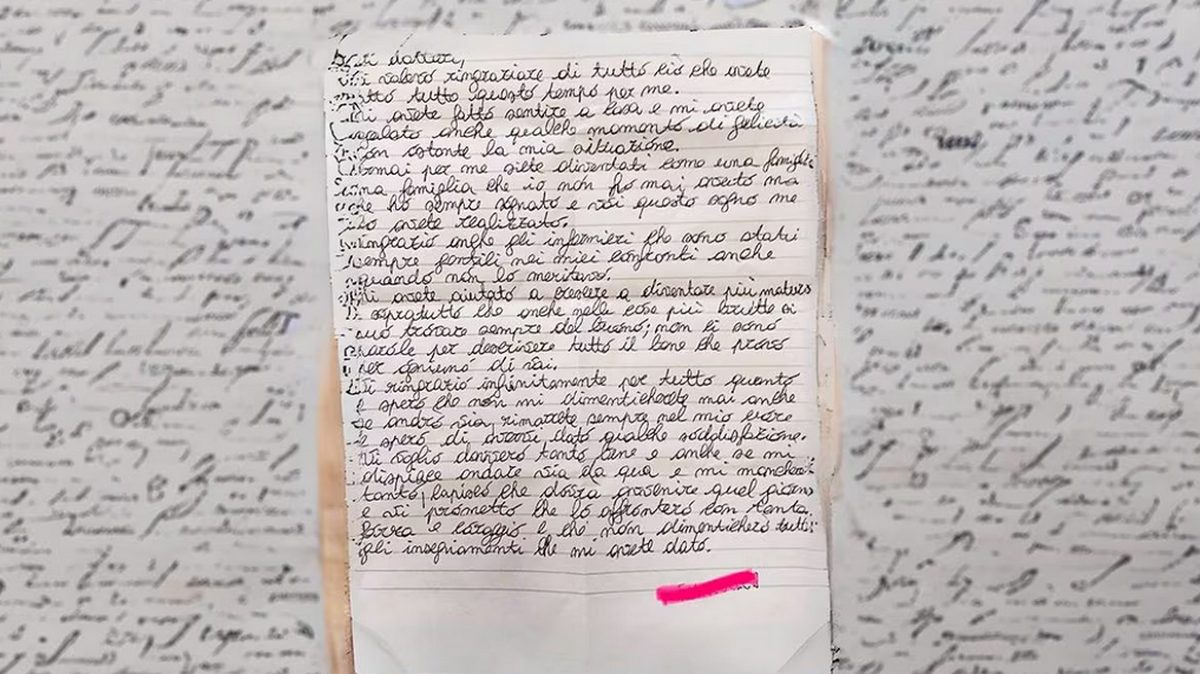 dottori,
volevo ringraziare di tutto ciò che avete
tutto questo tempo per me.
Mi avete fatto sentire a casa e mi avete
regalato anche qualche momento di felicità
non ostante la mia situazione.
Ormai per me siete diventati come una famiglia
una famiglia che io non ho mai avuto ma
che ho sempre sognato e voi questo sogno me
lo avete realizzato.
Ringrazio anche gli infermieri che sono stati
sempre gentili nei miei confronti anche
quando non lo meritavo.
Mi avete aiutato a crescere a diventare più maturo
E sopratutto che anche nelle cose più brutte si
può trovare sempre del buono; non ci sono
parole per descrivere tutto il bene che provo
per ognuno di voi.
Vi ringrazio infinitamente per tutto quanto
e spero che non mi dimenticherete mai anche
se andrò via, rimarrete sempre nel mio cuore
e spero di avervi dato qualche soddisfazione.
Vi voglio davvero tanto bene e anche se mi
dispiace andare via da qua e mi mancherete
tanto, capisco che dovrà avvenire quel giorno
e vi prometto che lo affronterò con tanta
forza e coraggio e che non dimenticherò tutti
gli insegnamenti che mi avete dato.